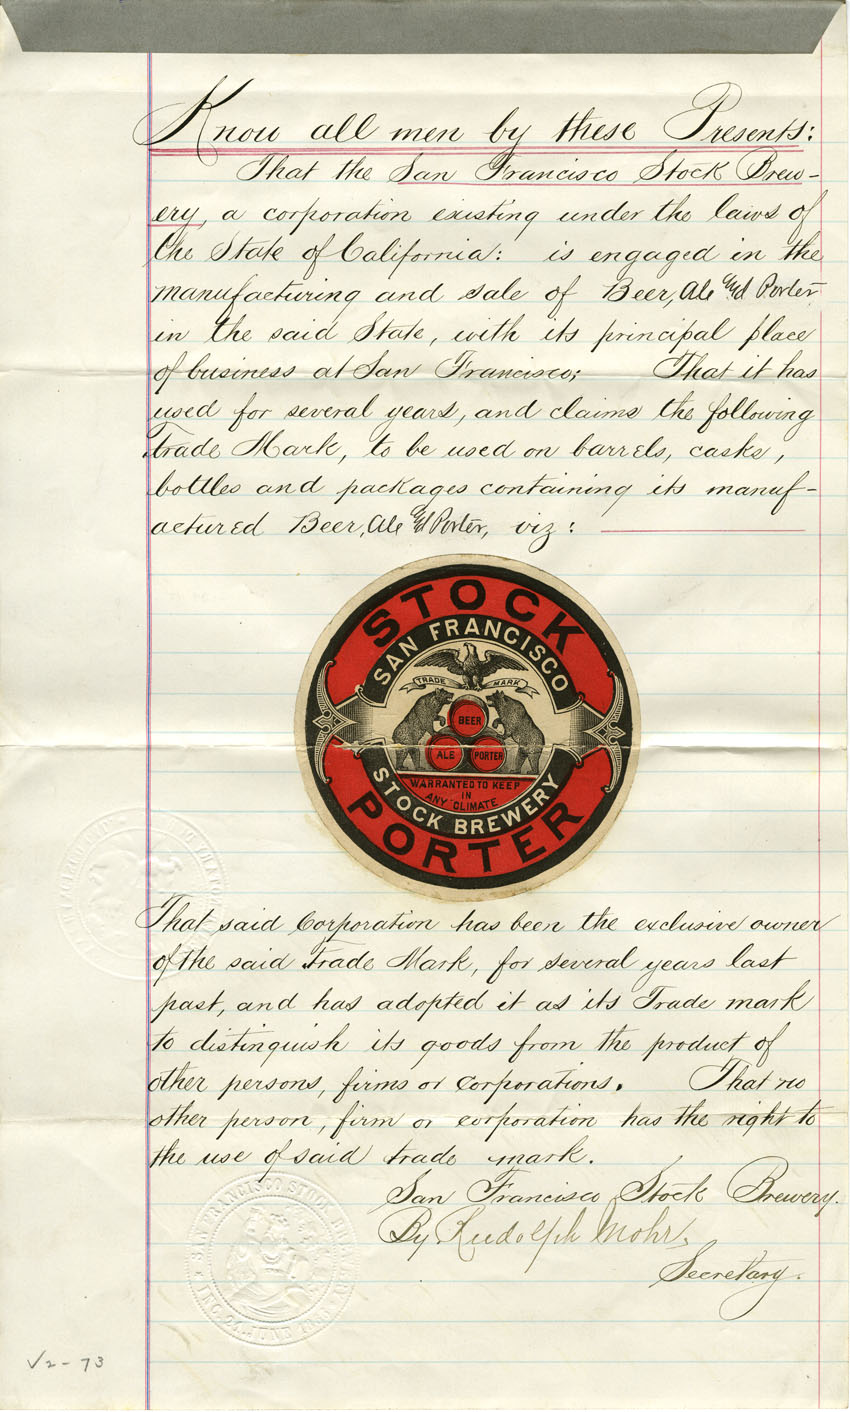 Know all men by these Presents:
That the San Francisco Stock Brew-
ery, a corporation existing under the laws of
the State of California: is engaged in the
manufacturing and sale of Beer, Ale and Porter
in the said State, with its principal place
of business at San Francisco; That it has
used for several years, and claims the following
Trade Mark, to be used on barrels, casks,
bottles and packages containing its manuf-
actured Beer, Ale and Porter, viz:
STOCK
SAN FRANCISCO
TRADE MARK
BEER
ALE PORTER
WARRANTED TO KEEP
IN
ANY CLIMATE
STOCK BREWERY
PORTER
That said Corporation has been the exclusive owner
of the said Trade Mark, for several years last
past, and has adopted it as its Trade mark
to distinguish its goods from the product of
other persons, firms or corporations. That no
other person, firm or corporation has the right to
the use of said trade mark.
San Francisco Stock Brewery.
By Rudolph Mohr,
Secretary.
SAN FRANCISCO STOCK
INC. 24. JUNE
V2-73